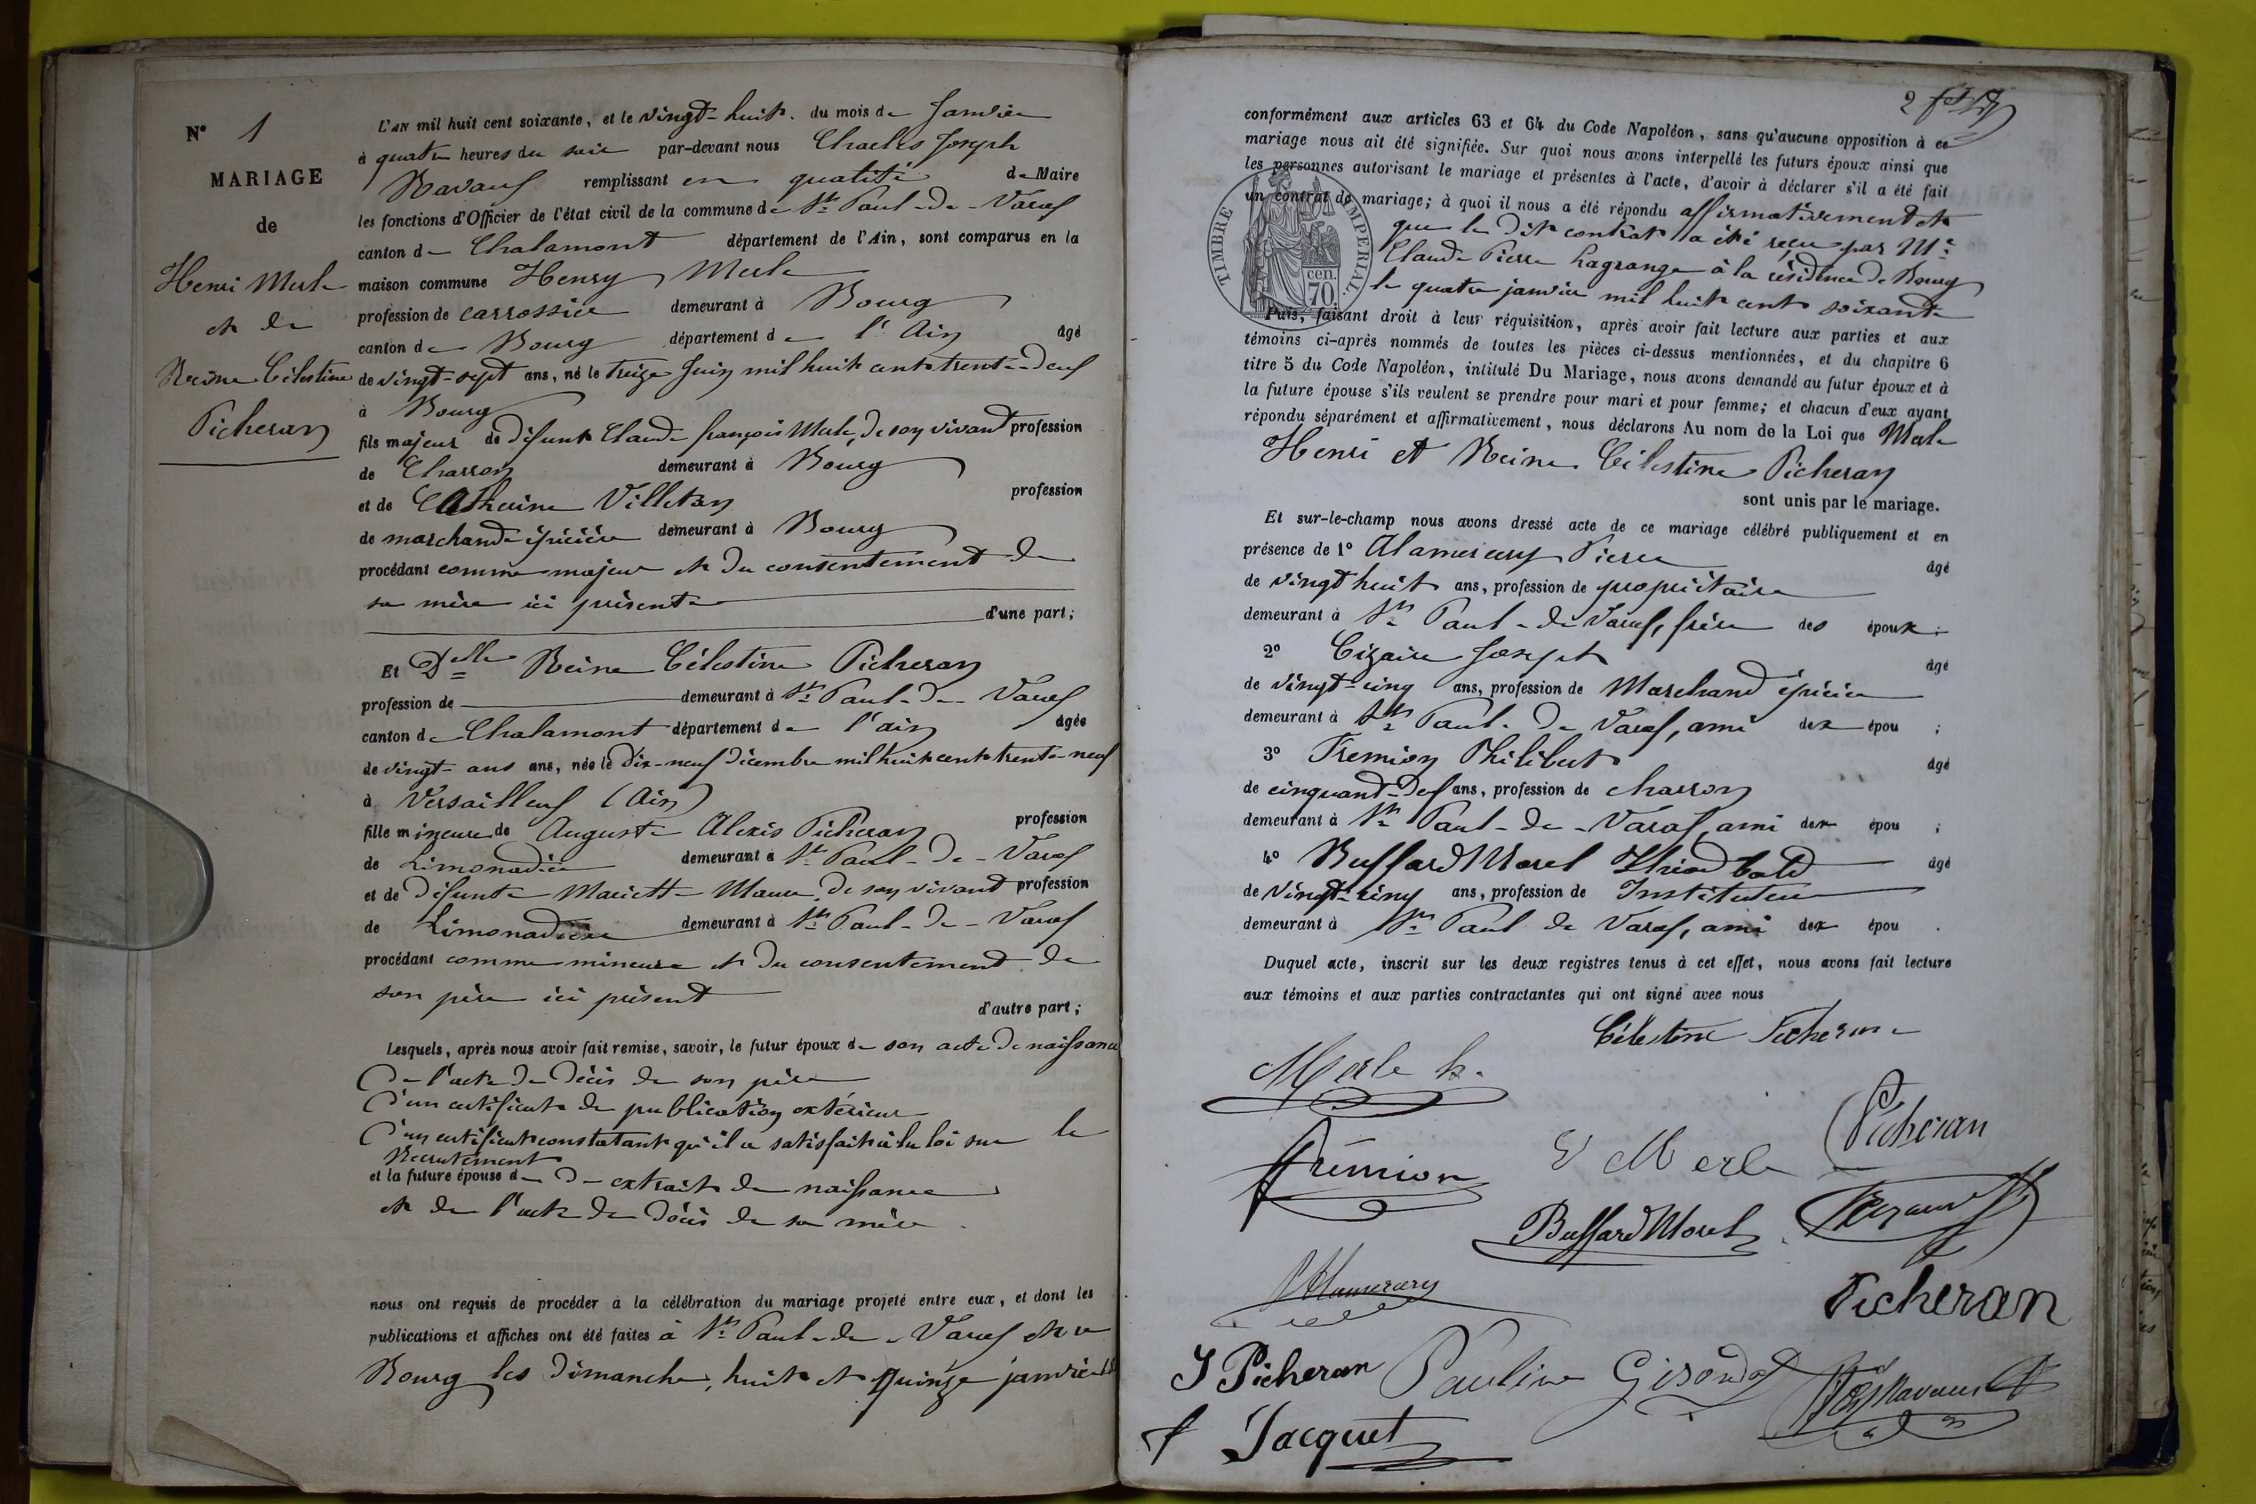 N° 1
MARIAGE
de
Henri Merle
et de
Reine Célestine
Picheran
L'AN mil huit cent soixante, et le vingt-huit du mois de Janvier
à quatre heures du soir par-devant nous Charles Joseph
Ravaux remplissant en qualité de Maire
les fonctions d'Officier de l'état civil de la commune de St Paul-de-Varax
canton de Chalamont département de l'Ain, sont comparus en la
maison commune Henry Merle
profession de carrossier demeurant à Bourg
canton de Bourg département de l'Ain âgé
de vingt-sept ans, né le treize Juin mil huit cent trente-deux
à Bourg
fils majeur de défunt Claude françois Merle, de son vivant profession
de Charron demeurant à Bourg
et de Catherine Villetan profession
de marchande épicière demeurant à Bourg
procédant comme majeur et du consentement de
sa mère ici présente
d'une part;
Et Delle Reine Célestine Picheran
profession de demeurant à St Paul-de-Varax
canton de Chalamont département de l'ain âgée
de vingt ans ans, née le dix-neuf Décembre mil huit cent trente-neuf
à Versailleux (Ain)
fille mineure de Auguste Alexis Picheran profession
de Limonadier demeurant à St Paul-de-Varax
et de défunte Mariette Maure de son vivant profession
de Limonadière demeurant à St Paul-de-Varax
procédant comme mineure et du consentement de
son père ici présent
d'autre part;
Lesquels, après nous avoir fait remise, savoir, le futur époux de son acte de naissance
De l'acte de décès de son père
D'un certificat de publication extérieur
D'un certificat constatant qu'il a satisfait à la loi sur le
Recrutement
et la future épouse de D- extrait de naissance
et de l'acte de décès de sa mère
nous ont requis de procéder à la célébration du mariage projeté entre eux, et dont les
publications et affiches ont été faites à St Paul-de-Varax et à
Bourg les dimanche, huit et quinze janvier
2
conformément aux articles 63 et 64 du Code Napoléon, sans qu'aucune opposition à ce
mariage nous ait été signifiée. Sur quoi nous avons interpellé les futurs époux ainsi que
les personnes autorisant le mariage et présentes à l'acte, d'avoir à déclarer s'il a été fait
un contrat de mariage; à quoi il nous a été répondu affirmativement et
que le dit contrat a été reçu par Me
Claude Pierre Lagrange à la résidence de Bourg
le quatre janvier mil huit cent soixante
TIMBRE IMPERIAL
cen.
70
Puis, faisant droit à leur réquisition, après avoir fait lecture aux parties et aux
témoins ci-après nommés de toutes les pièces ci-dessus mentionnées, et du chapitre 6
titre 5 du Code Napoléon, intitulé Du Mariage, nous avons demandé au futur époux et à
la future épouse s'ils veulent se prendre pour mari et pour femme; et chacun d'eux ayant
répondu séparément et affirmativement, nous déclarons Au nom de la Loi que Merle
Henri et Reine Célestine Picheran
sont unis par le mariage.
Et sur-le-champ nous avons dressé acte de ce mariage célébré publiquement et en
présence de 1° Alamercery Pierre âgé
de vingt huit ans, profession de propriétaire
demeurant à St Paul-de-Varax, frère des époux;
2° Cizaire Joseph âgé
de vingt-cinq ans, profession de Marchand épicier
demeurant à St Paul-de Varax, ami des épou ;
3° Fremion Philibert âgé
de cinquante-Deux ans, profession de charron
demeurant à St Paul-de-Varax, ami des épou ;
4° Buffard Morel âgé
de vingt-cinq ans, profession de Instituteur
demeurant à St Paul de Varax, ami des épou .
Duquel acte, inscrit sur les deux registres tenus à cet effet, nous avons fait lecture
aux témoins et aux parties contractantes qui ont signé avec nous
Célestine Picheran
Merle h.
Frémion
Merle
Picheran
Buffard Morel
Alamercery
Picheran
J Picheran
Pauline Girondot
Ravaux
Jacquet